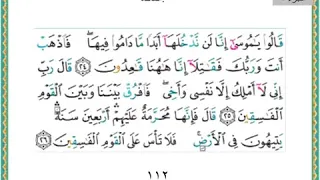 قَالُوا۟ يَـٰمُوسَىٰٓ إِنَّا لَن نَّدْخُلَهَآ أَبَدًا مَّا دَامُوا۟ فِيهَا ۖ فَٱذْهَبْ
أَنتَ وَرَبُّكَ فَقَـٰتِلَآ إِنَّا هَـٰهُنَا قَـٰعِدُونَ ٢٤ قَالَ رَبِّ
إِنِّى لَآ أَمْلِكُ إِلَّا نَفْسِى وَأَخِى ۖ فَٱفْرُقْ بَيْنَنَا وَبَيْنَ ٱلْقَوْمِ
ٱلْفَـٰسِقِينَ ٢٥ قَالَ فَإِنَّهَا مُحَرَّمَةٌ عَلَيْهِمْ ۛ أَرْبَعِينَ سَنَةً ۛ
يَتِيهُونَ فِى ٱلْأَرْضِ ۚ فَلَا تَأْسَ عَلَى ٱلْقَوْمِ ٱلْفَـٰسِقِينَ ٢٦
١١٢